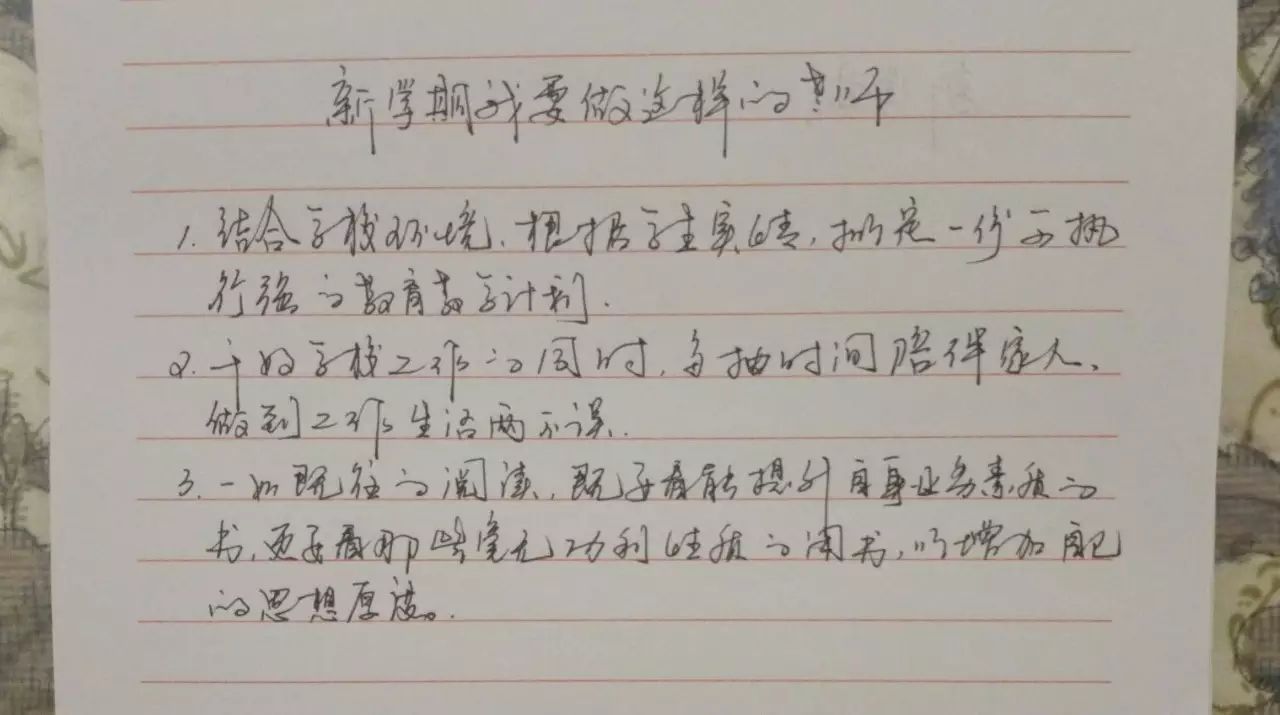 新学期我要做这样的老师
1. 结合学校环境,根据学生实情,拟定一份可执
行强的教育教学计划.
2. 干好学校工作的同时,多抽时间陪伴家人、
做到工作生活两不误.
3. 一如既往的阅读,既要看能提升自身业务素质的
书,更要看那些毫无功利性质的闲书,以增加自己
的思想厚度。